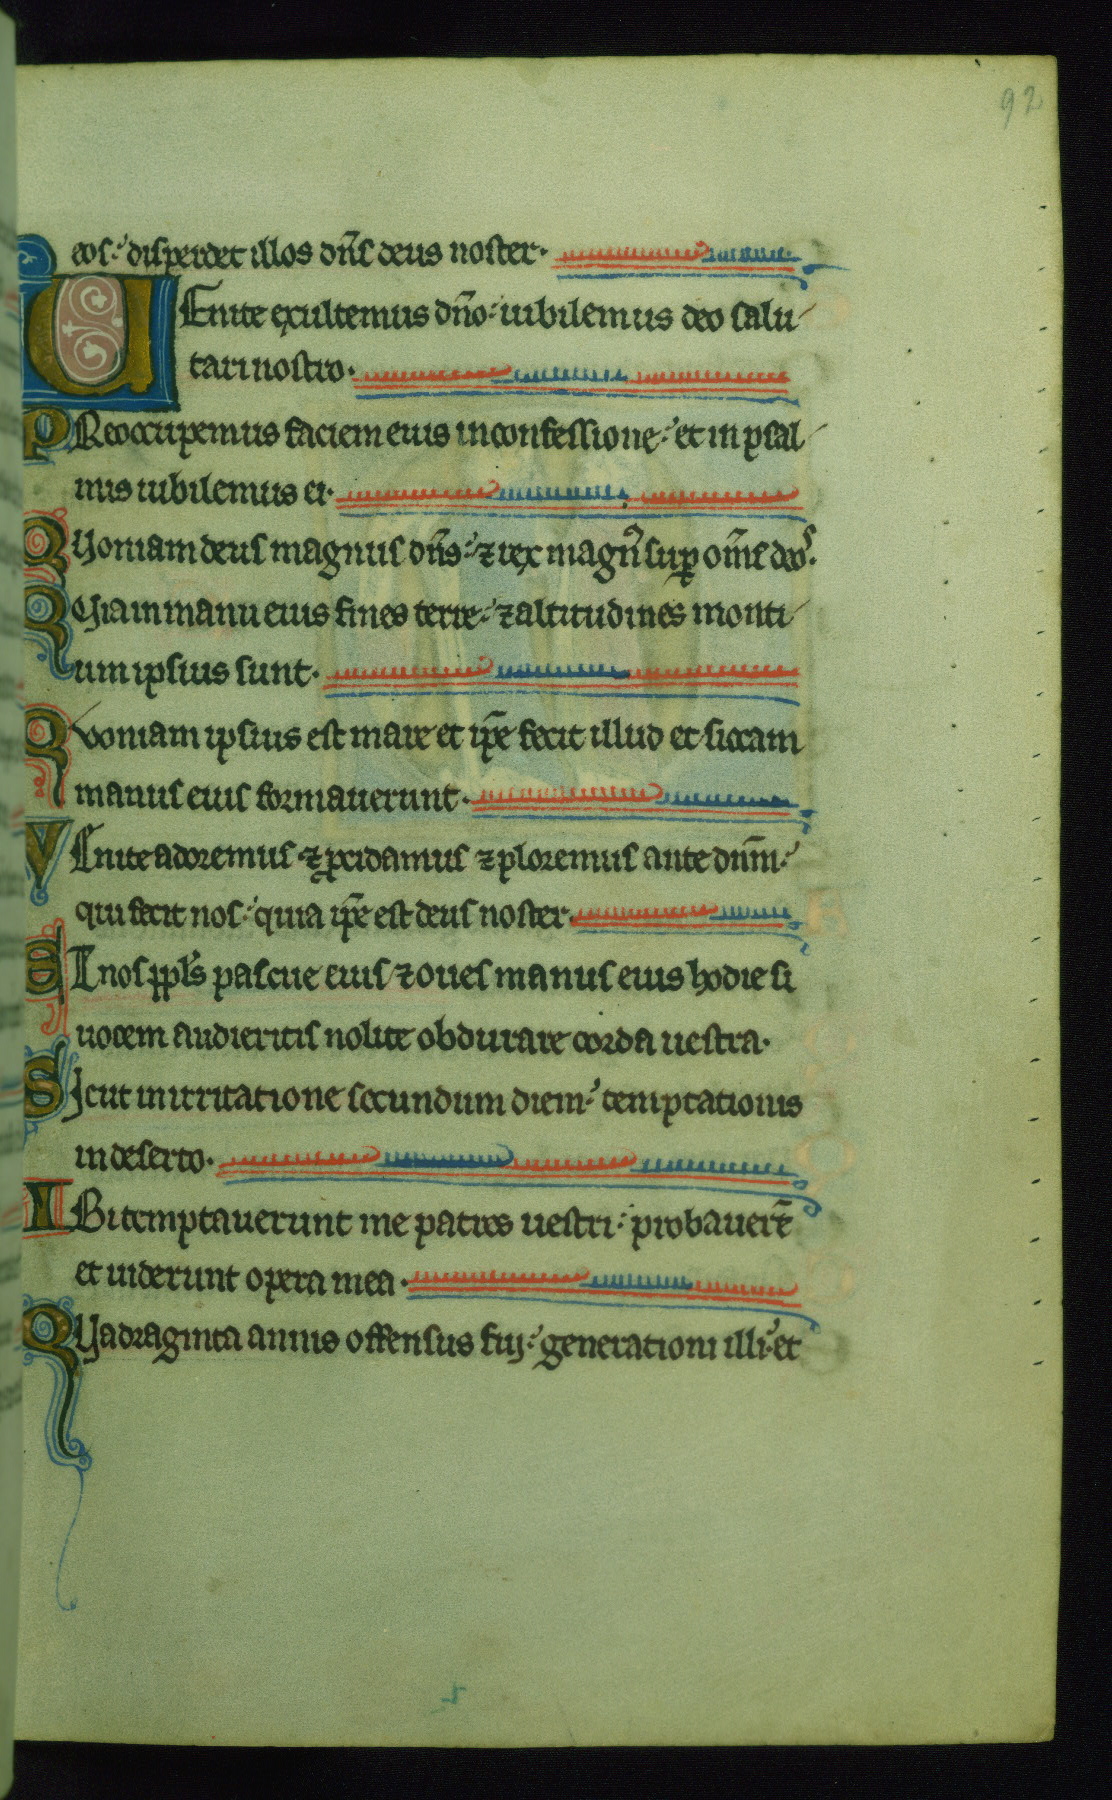 92
eos: disperdet illos dñs deus noster.
UEnite exultemus dño: iubilemus deo salu
tari nostro.
PReoccupemus faciem eius in confessione: et in psal
mis iubilemus ei.
QUoniam deus magnus dñs: ⁊ rex magn᷒ suꝑ om̃s deos.
QUia in manu eius fines terre: ⁊ altitudines monti
um ipsius sunt.
Quoniam ipsius est mare et ip̃e fecit illud et siccam
manus eius formauerunt.
VEnite adoremus ⁊ ꝓcidamus ⁊ ploremus ante dnm̃:
qui fecit nos: quia ip̃e est deus noster.
ET nos ppl̃s pascue eius ⁊ oues manus eius hodie si
uocem audieritis nolite obdurare corda uestra.
SIcut in irritatione secundum diem: temptationis
in deserto.
UBi temptauerunt me patres uestri: probauer̃
et uiderunt opera mea.
QUadraginta annis offensus fui: generationi illi. et